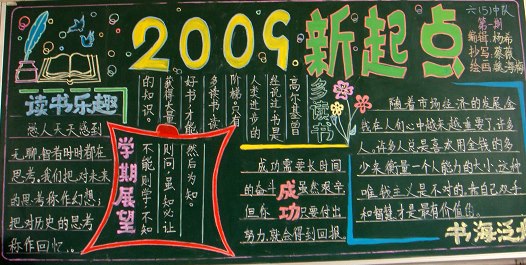 2009 新起点
六(5)中队
第一期
编辑:杨希
抄写:蔡薇
读书乐趣
愚人天天感到
无聊,智者时时都在
思考,我们把对未来
的思考称作幻想;
把对历史的思考
称作回忆..
学期展望
然后为知。
则问,虽知必让
不能则学,不知
多读书
高尔基曾
经说过书是
人类进步的
阶梯,只有
多读书,读
好书,才能
获得大量
的知识。
成功
成功需要长时间
的奋斗,虽然艰辛
但你只要付出
努力,就会得到回报。
随着市场经济的发展,金
钱在人们心中越来越重要了,许多
人,许多人总是喜欢用金钱的多
少来衡量一个人能力的大小,这种
唯我主义是不对的,靠自己双手
和智慧才是最有价值的。
书海泛舟